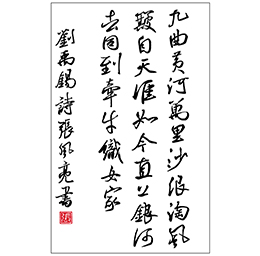 九曲黄河萬里沙浪淘風
簸自天涯如今直上銀河
去同到牽牛織女家
劉禹錫詩張亮書